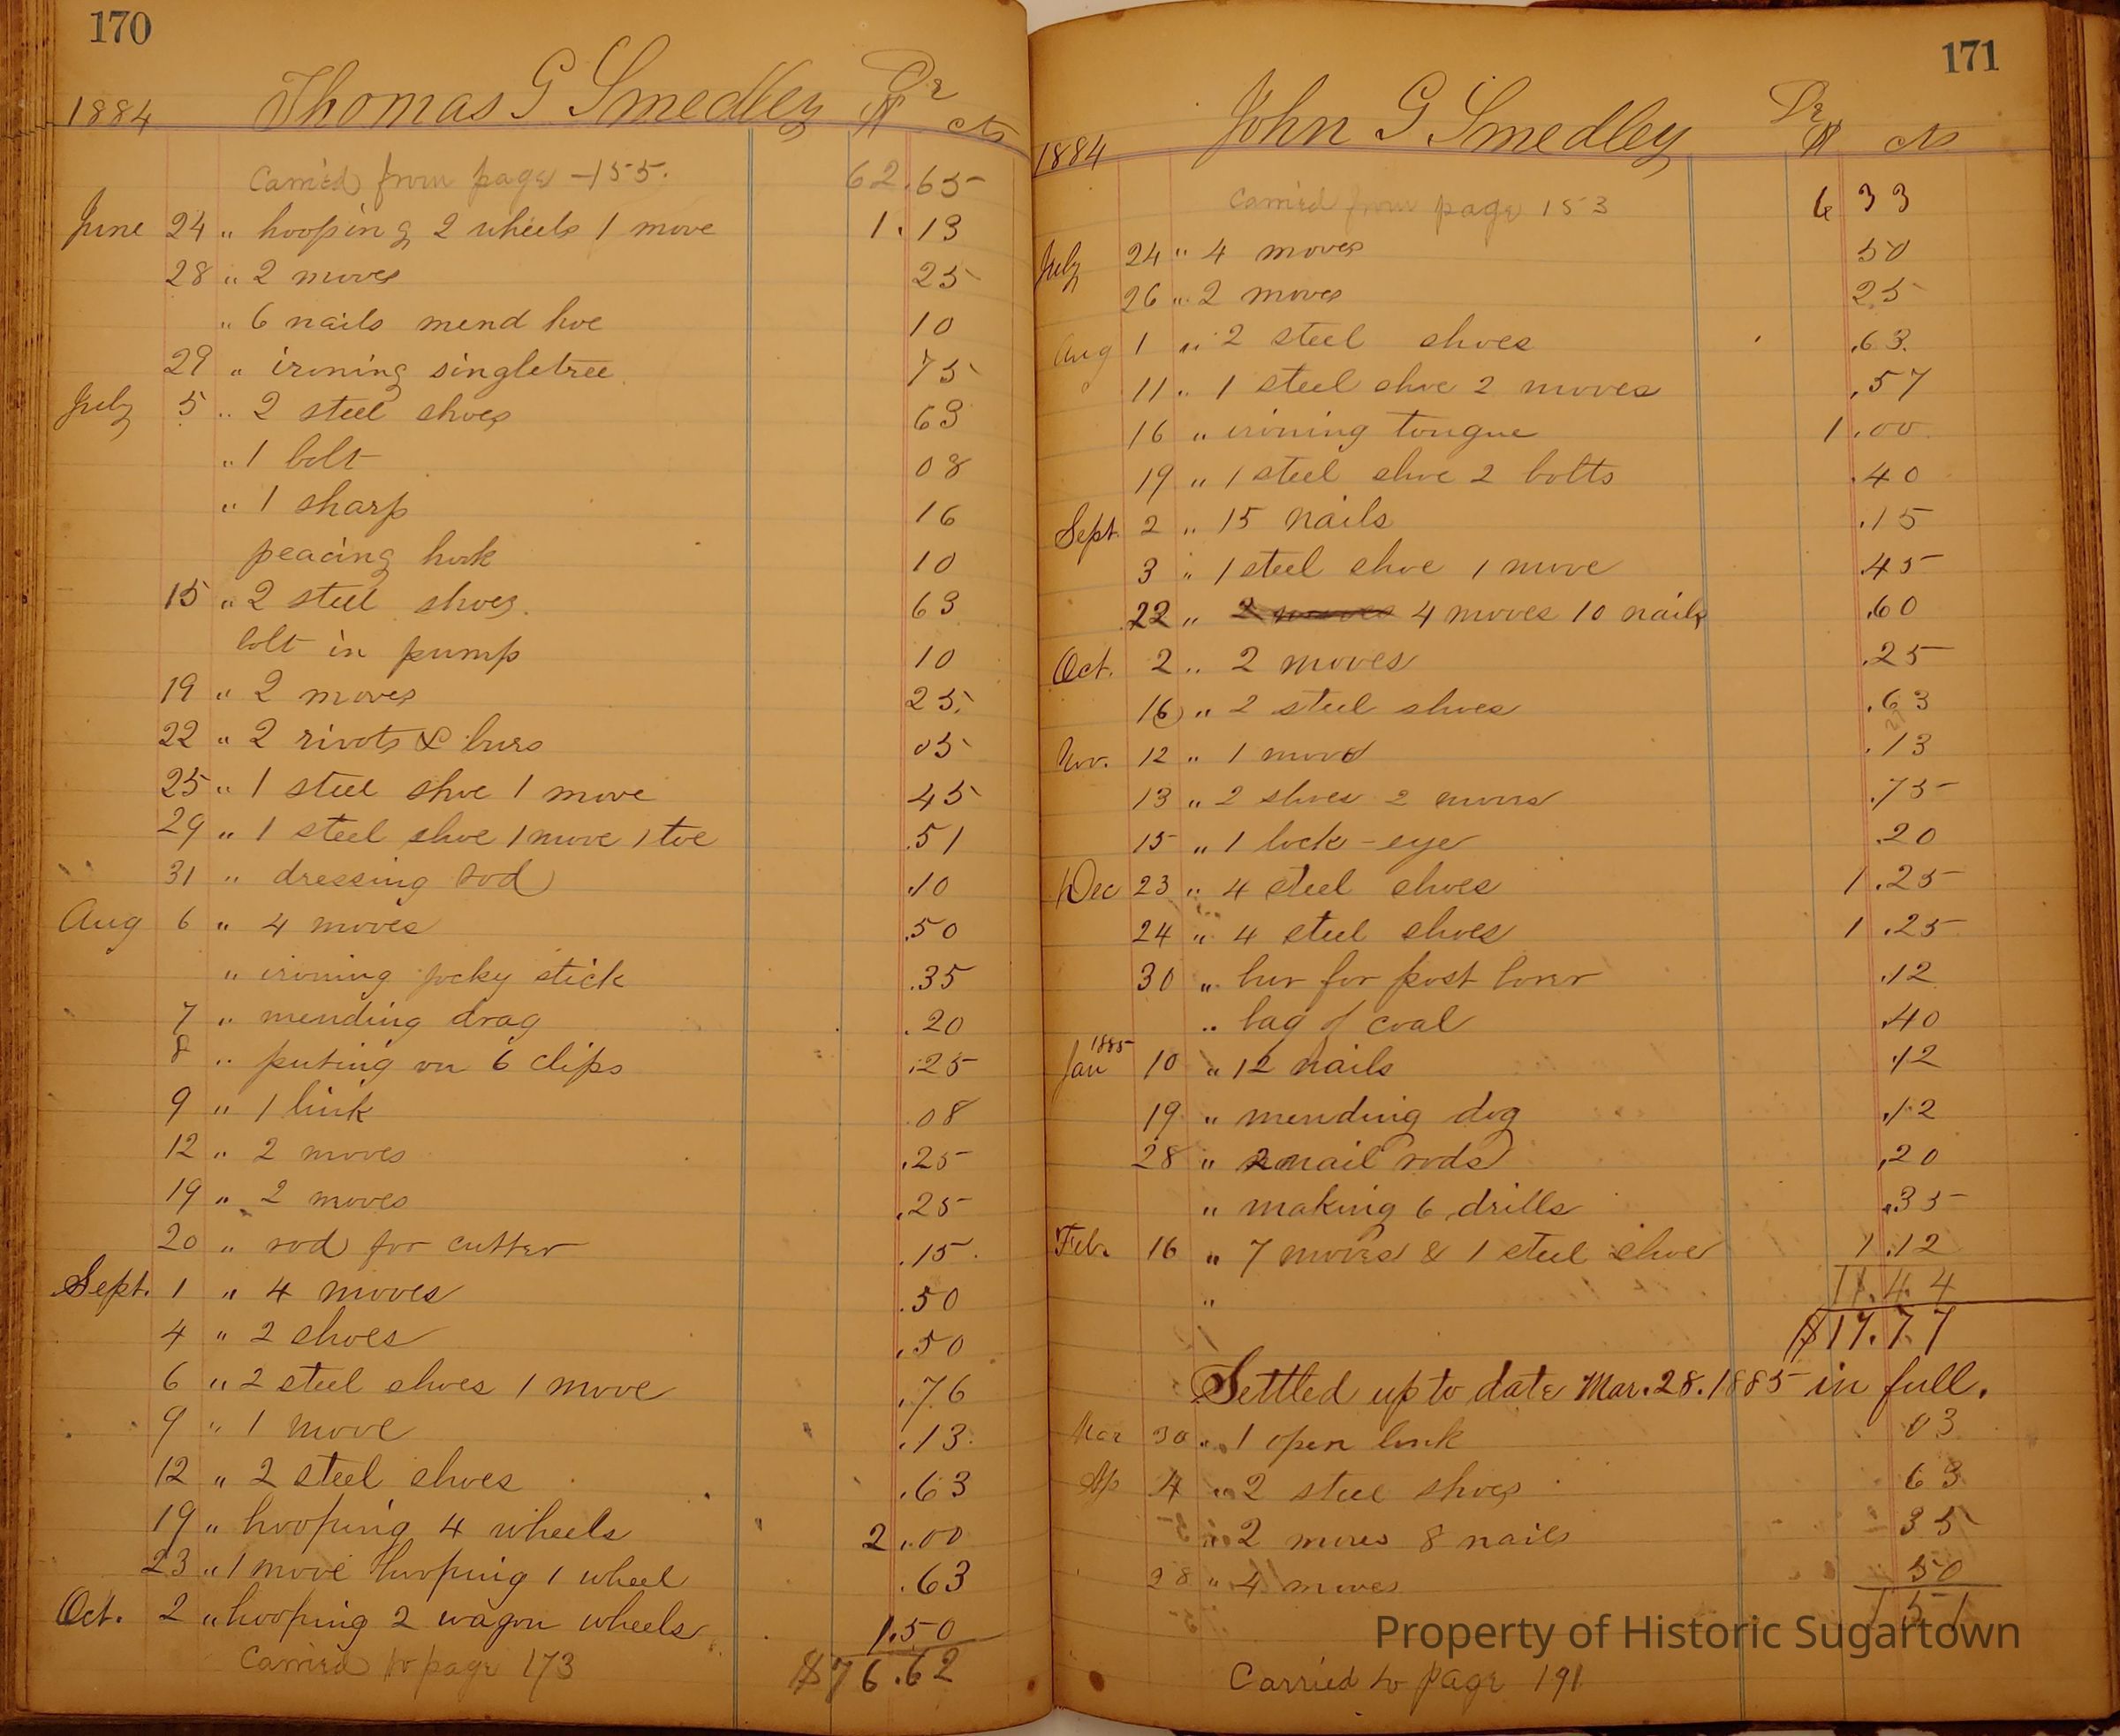 170
Dr
1884 Thomas G Smedley $ cts
Carried from page -155. 62.65
June 24 " hooping 2 wheels 1 move 1.13
28 " 2 moves 25
" 6 nails mend hoe 10
29 " ironing singletree 75
July 5 " 2 steel shoes 63
" 1 bolt 08
" 1 sharp 16
peacing hook 10
15 " 2 steel shoes. 63
bolt in pump 10
19 " 2 moves 25.
22 " 2 rivots & burs 05
25 " 1 steel shoe 1 move 45
29 " 1 steel shoe 1 move 1 toe .51
31 " dressing rod .10
Aug 6 " 4 moves .50
" ironing jocky stick .35
7 " mending drag .20
8 " puting on 6 clips .25
9 " 1 link .08
12 " 2 moves .25
19 " 2 moves .25
20 " rod for cutter .15.
Sept. 1 " 4 moves .50
4 " 2 shoes .50
6 " 2 steel shoes 1 move .76
9 " 1 move .13.
12 " 2 steel shoes .63
19 " hooping 4 wheels 2.00
23 " 1 move hooping 1 wheel .63
Oct. 2 " hooping 2 wagon wheels 1.50
Carried to page 173 $76.62
171
Dr
1884 John G Smedley $ cts
Carried from page 153 6 33
July 24 " 4 moves 50
26 " 2 moves 25
Aug 1 " 2 steel shoes .63.
11 " 1 steel shoe 2 moves .57
16 " ironing tongue 1.00.
19 " 1 steel shoe 2 bolts .40
Sept. 2 " 15 nails .15
3 " 1 steel shoe 1 move .45
22 " 2 moves 4 moves 10 nails .60
Oct. 2 " 2 moves .25
16 " 2 steel shoes .63
Nov. 12 " 1 move .13
13 " 2 shoes 2 moves .75
15 " 1 lock-eye .20
Dec 23 " 4 steel shoes 1.25
24 " 4 steel shoes 1.25
30 " bur for post borer .12
" bag of coal .40
1885
Jan 10 " 12 nails .12
19 " mending dog .12
28 " 2 nail rods .20
" making 6 drills .35
Feb. 16 " 7 moves & 1 steel shoe 1.12
" 11.44
$17.77
Settled up to date Mar. 28. 1885 in full.
Mar 30 " 1 open link 03
Ap 4 " 2 steel shoes 63
" 2 moves 8 nails 35
28 " 4 moves 50
1 51
Property of Historic Sugartown
Carried to page 191